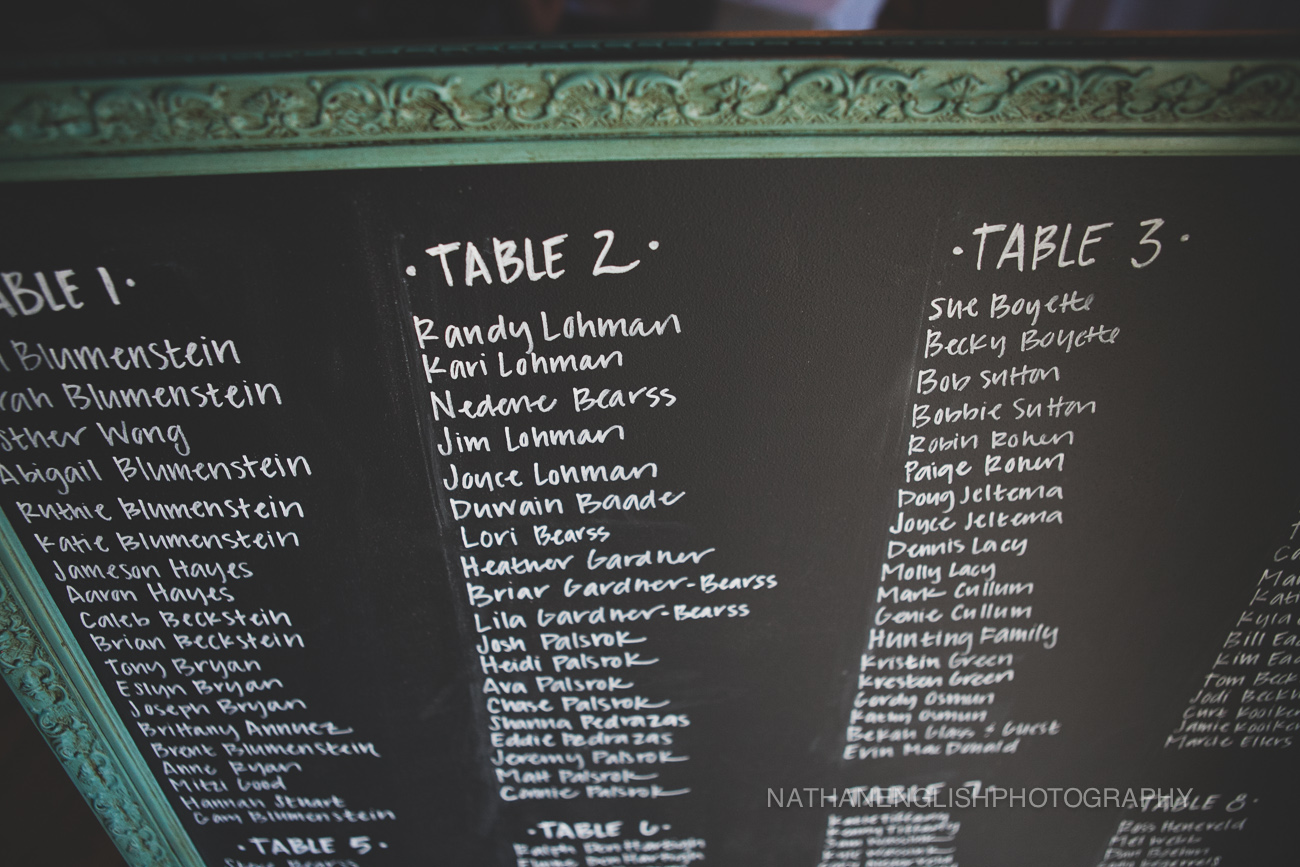 TABLE 1
Blumenstein
Blumenstein
Wong
Abigail Blumenstein
Ruthie Blumenstein
Katie Blumenstein
Jameson Hayes
Aaron Hayes
Caleb Beckstein
Brian Beckstein
Tony Bryan
Eslyn Bryan
Joseph Bryan
Brittany
Brent Blumenstein
Anne Ryan
Mitzi Good
Hannah Stuart
Gary Blumenstein
· TABLE 2 ·
Randy Lohman
Kari Lohman
Nedene Bearss
Jim Lohman
Joyce Lohman
Duwain Baade
Lori Bearss
Heather Gardner
Briar Gardner-Bearss
Lila Gardner-Bearss
Josh Palsrok
Heidi Palsrok
Ava Palsrok
Chase Palsrok
Shanna Pedrazas
Eddie Pedrazas
Jeremy Palsrok
Matt Palsrok
Connie Palsrok
· TABLE 3 ·
Sue Boyette
Becky Boyette
Bob Sutton
Bobbie Sutton
Robin Rohen
Paige Rohen
Doug Jeltema
Joyce Jeltema
Dennis Lacy
Molly Lacy
Mark Cullum
Genie Cullum
Hunting Family
Kristin Green
Kresten Green
Gordy Osmun
Kathy Osmun
Bekah Glass + Guest
Erin MacDonald
Bill
Kim
Tom
Jodi
Curt
Jamie
Marcie Ellers
· TABLE 5 ·
· TABLE 6 ·
TABLE 7
TABLE 8 ·
NATHANENGLISHPHOTOGRAPHY